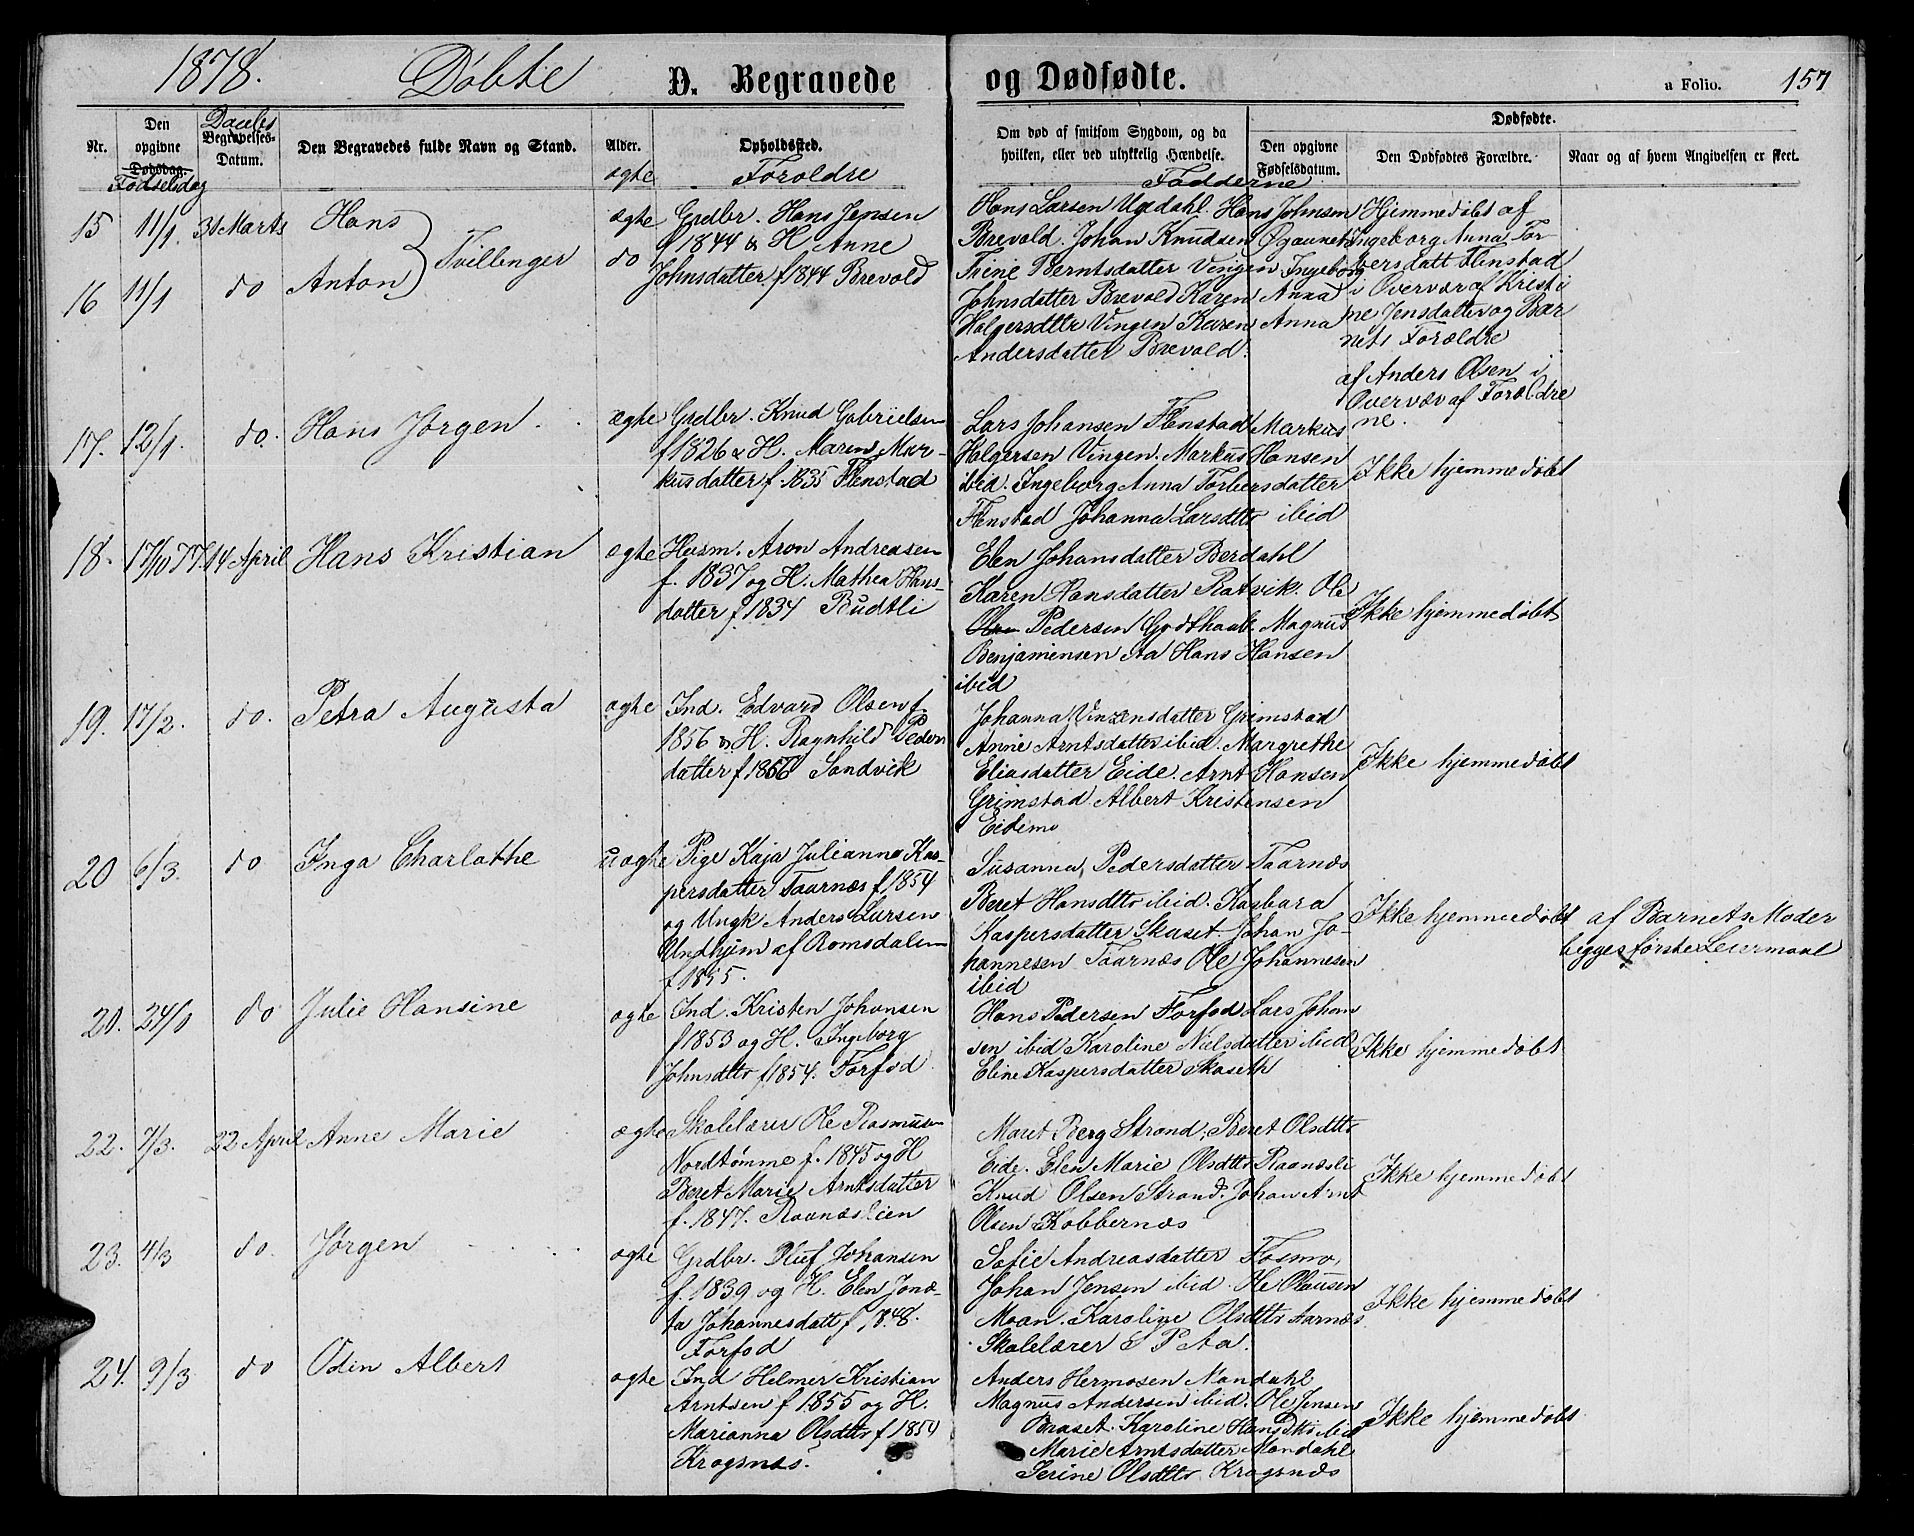 1878. Døbte D. Begravede og Dødfødte. a Folio. 157
Nr.
Den opgivne Dødsdag. Fødselsdag
Daabs Begravelses-Datum.
Den Begravedes fulde Navn og Stand.
Alder. ægte
Opholdssted. Foroldre
Om død af smitsom Sygdom, og da hvilken, eller ved ulykkelig Hændelse.
Fadderne
Dødfødte.
Den opgivne Fødselsdatum.
Den Dødfødtes Forældre.
Naar og af hvem Angivelsen er skeet.
15 11/1. 31 Marts Hans
16 11/1 do Anton
Tvillinger
ægte
do
Grdbr. Hans Jensen
f 1844 & H. Anne
Johnsdatter f 1844 Brevold
Hans Larsen Ugdahl. Hans Johnsen
Brevold. Johan Knudsen Øgaunet
Trine Berntsdatter Vingen Ingeborg
Johnsdatter Brevold Karen Anna
Holgersdtter Vingen Karen Anna
Andersdatter Brevold.
Hjemmedøbt af
Ingeborg Anna Tor-
bersdatt Flenstad
i Overvær af Kristi
ne Jensdatter og Bar
nets Forældre
af Anders Olsen i
Overvær af Forældre
ne.
17. 12/1. do. Hans Jørgen. ægte
Grdbr. Knud Gabrielsen
f 1826 & H. Maren Mar-
kusdatter f. 1835 Flenstad
Lars Johansen Flenstad Markus
Holgersen Vingen. Markus Hansen
ibid. Ingeborg Anna Torbersdatter
Flenstad Johanna Larsdttr ibid
Ikke hjemmedøbt
18. 17/10 77. 14 April Hans Kristian ægte
Husm. Aron Andreasen
f. 1837 og H. Mathea Hans-
datter f 1834 Budtli
Elen Johansdatter Berdahl
Karen Hansdatter Ratvik. Ole
Pedersen Godthaab. Magnus
Benjaminsen Aa Hans Hansen
ibid
Ikke hjemmedøbt
19. 17/2. do. Petra Augusta ægte
Ind. Edvard Olsen f.
1856 & H. Ragnhild Peders
datter f 1856 Sandvik
Johanna Vinzensdatter Grimstad
Anne Arntsdatter ibid. Margrethe
Eliasdatter Eide. Arnt Hansen
Grimstad Albert Kristensen
Eidemo
Ikke hjemmedøbt
20 6/3. do Inga Charlotte uægte
Pige Kaja Julianna Kas-
persdatter Taarnæs f. 1854
og Ungk Anders Larsen
Undhjem af Romsdalen
f 1855.
Susanna Pedersdatter Taarnæs
Beret Hansdttr ibid. Kasbara
Kaspersdatter Skaset. Johan Jo-
hannesen Taarnæs Ole Johannesen
ibid
Ikke hjemmedøbt
af Barnets Moder
begges første Leiermaal
20. 24/1 do Julie Hansine ægte
Ind. Kristen Johansen
f 1853 og H. Ingeborg
Johnsdttr f 1854. Forfod.
Hans Pedersen Forfod Lars Johan
sen ibid Karoline Nielsdatter ibid
Eline Kaspersdatter Skaseth
Ikke hjemmedøbt
22. 7/3. 22 April Anne Marie ægte
Skolelærer Ole Rasmusen
Nordtømme f. 1845 og H
Beret Marie Arntsdatter
f. 1847. Raanæslien
Maret Berg Strand, Beret Olsdttr
Eide. Elen Marie Olsdttr Raanæsli
Knud Olsen Strand. Johan Arnt
Olsen Kobbernæs
Ikke hjemmedøbt
23. 4/3 do. Jørgen ægte
Grdbr. Oluf Johansen
f. 1839 og H. Elen Jonæ-
ta Johannesdatt f. 1848.
Forfod
Sofie Andreasdatter Fosmo,
Johan Jensen ibid. Ole Olausen
Moan. Karoline Olsdttr Aarnæs
Skolelærer S P Aa.
Ikke hjemmedøbt
24. 9/3 do Odin Albert ægte
Ind Helmer Kristian
Arntsen f 1855 og H.
Marianna Olsdttr f 1854
Krogsnæs.
Anders Hermosen Mandahl
Magnus Andersen ibid. Ole Jensen
Braset. Karoline Hansdttr ibid
Marie Arntsdatter Mandahl
Serine Olsdttr Krogsnæs
Ikke hjemmedøbt